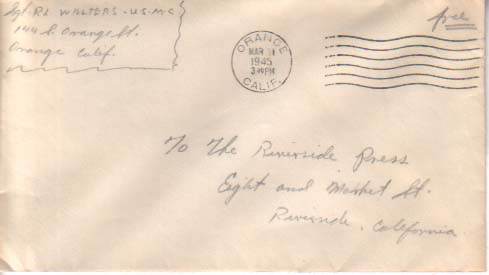 Sgt. R.L. WALTERS - U.S.M.C
144 S. Orange St.
Orange Calif.
free
ORANGE
MAR
1945
PM
CALIF.
To The Riverside Press
Eight and Market St.
Riverside, California.